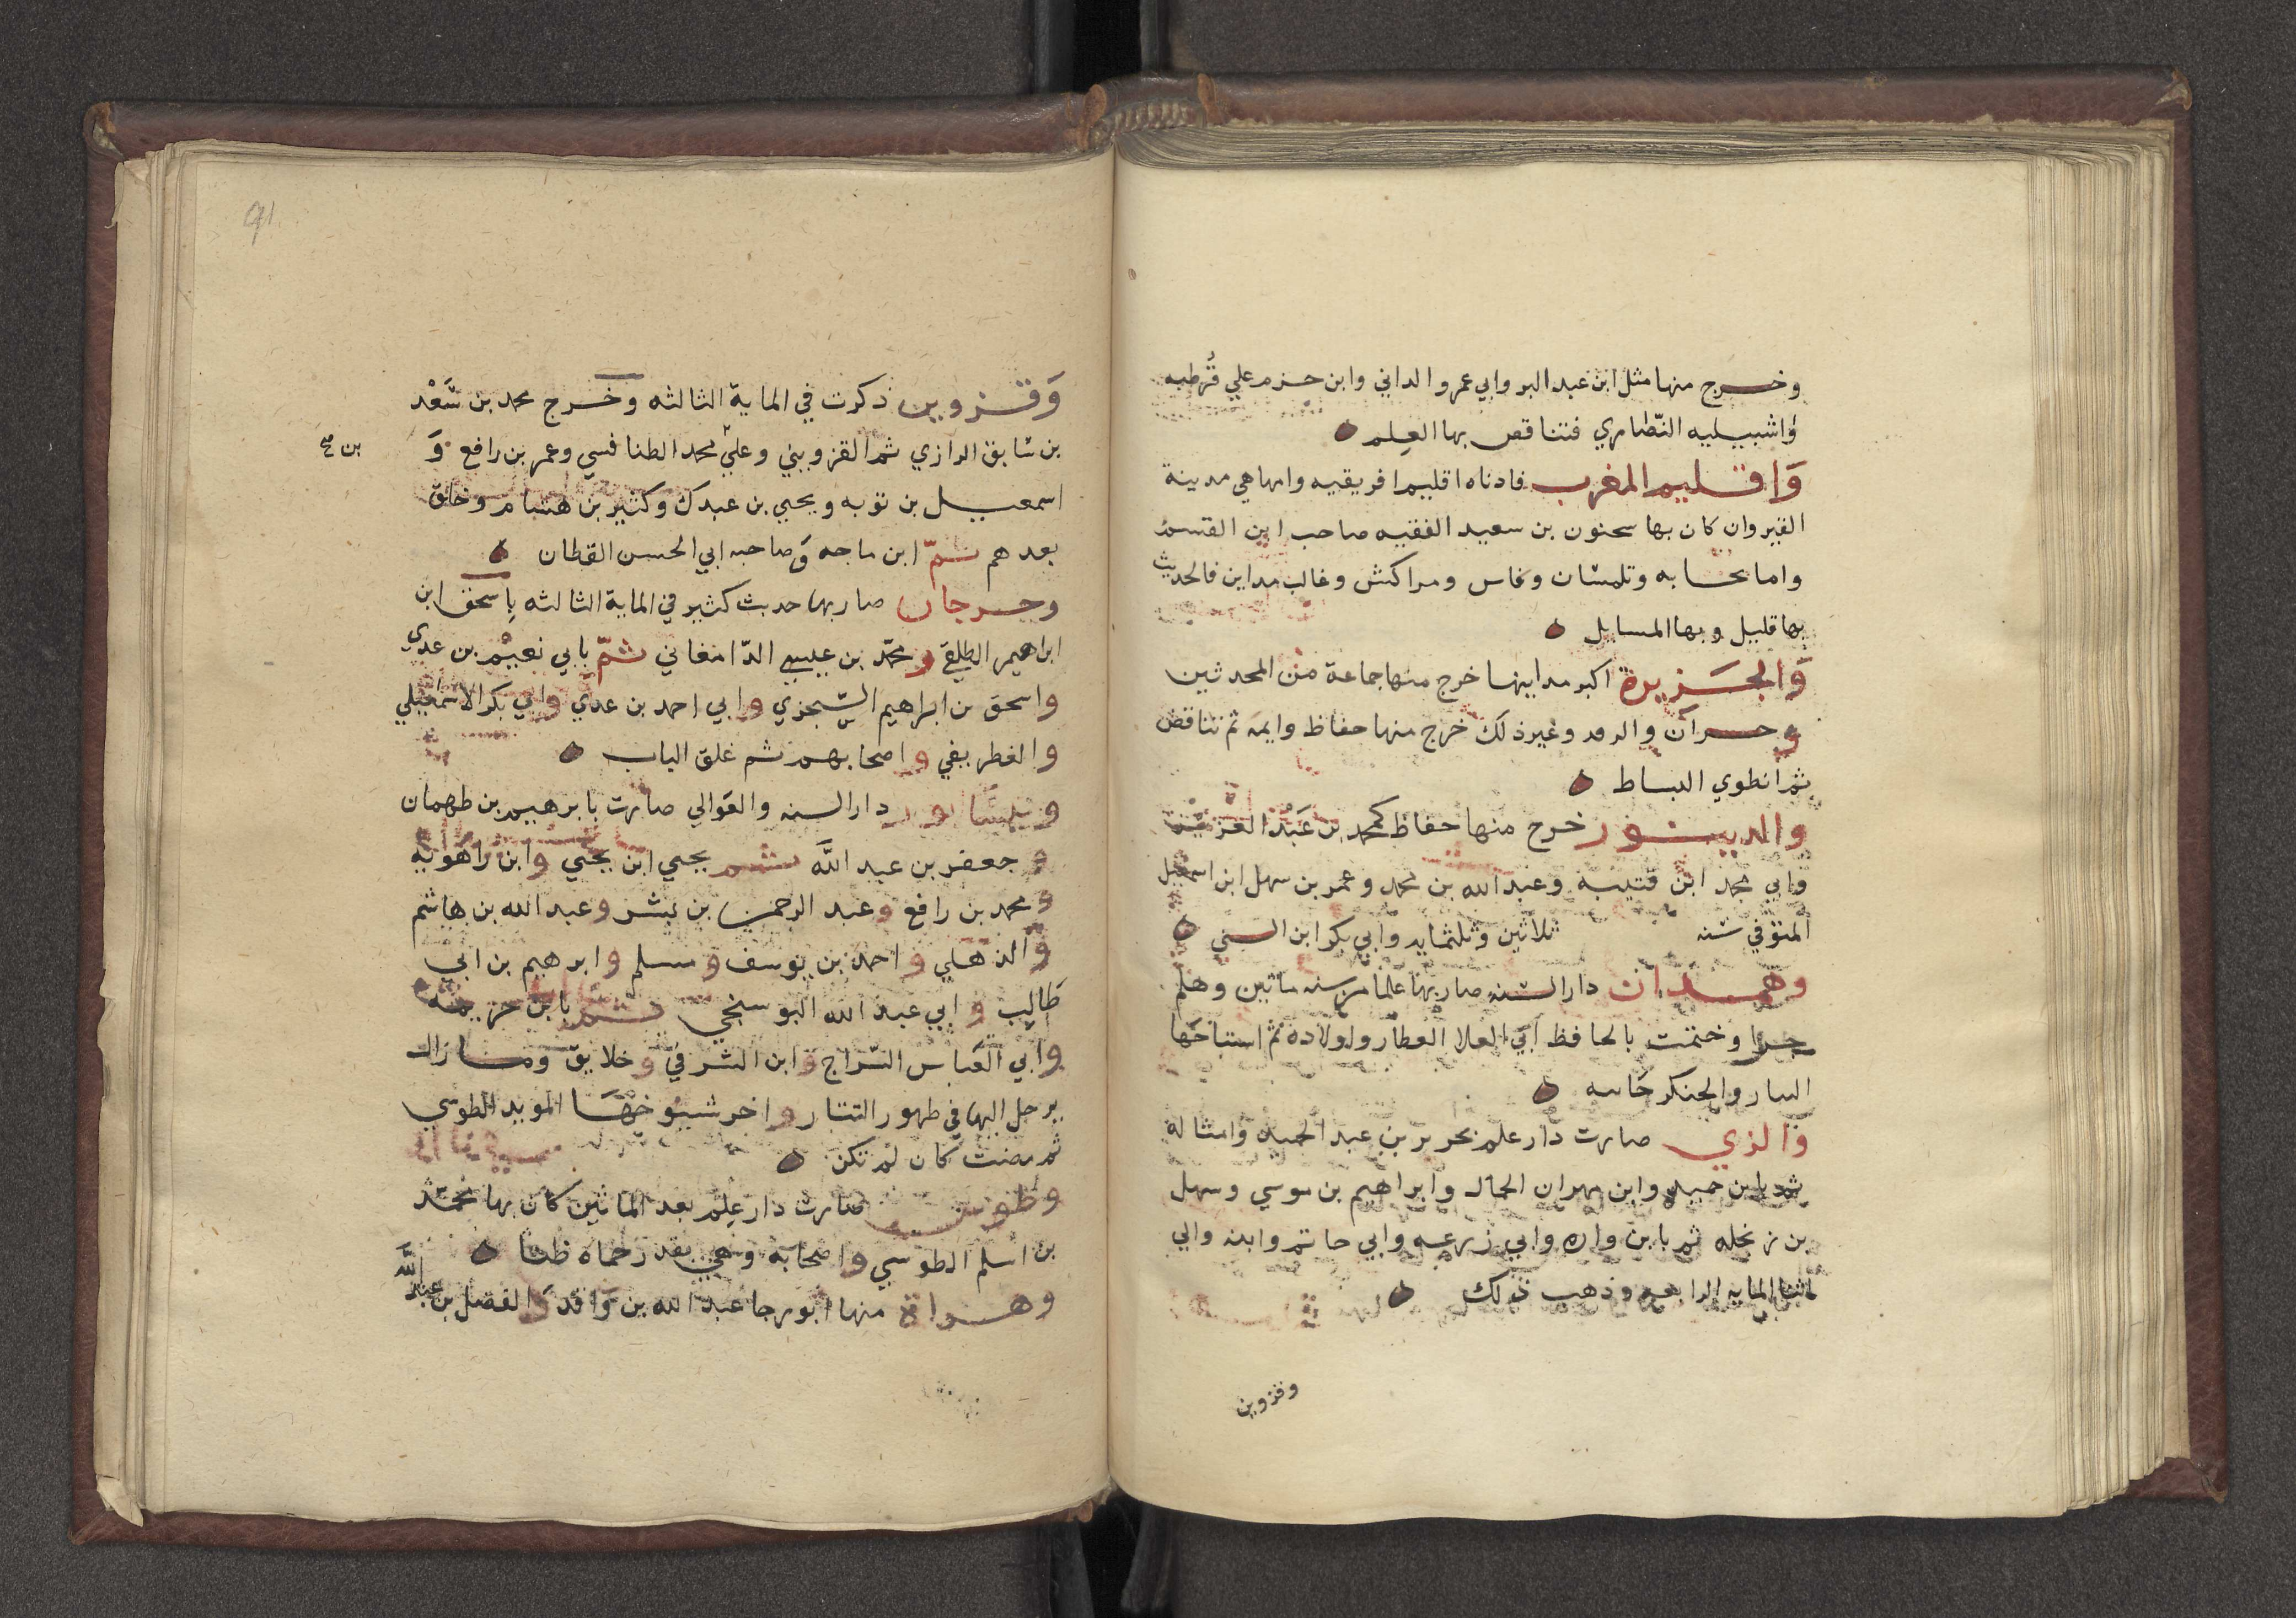 وخرج منها مثل ابن عبد البر وابي عمرو الداني وابن حزم علي قُرطبه
واشبيليه النّصاري فتناقص بها العِلم
وَاقليم المغرب فادناه اقليم افريقيه وامها هي مدينة
القيروان كان بها سحنون بن سعيد الفقيه صاحب ابن القسم
واما بحايه وتلمسان وفاس ومراكش وغالب مداين فالحديث
بها قليل وبها المسايل
وَالجَزيرة اكبر مداينها خرج منها جماعة من المحدثين
وحران والرقه وغير ذلك خرج منها حفاظ وايمه ثم تناقض
ثم انطوي البساط
والدينور خرج منها حفاظ كمحمد بن عَبْد العزيز
وابي محمد ابن قتيبة وعبد الله بن محمد وعمر بن سهل ابن اسمعيل
المتوفي سنه ثلاثين وثلثمايه وابي بكر ابن السني
وهمدان دار السنه صار بها علما من سنه ماتين وهلم
جرا وختمت بالحافظ ابي العلا العطار واولاده ثم استباحها
التتار والجنكرخانيه
والري صارت دار علم بجرير بن عبد الحميد وامثاله
ثم بابن حميد وابن مهران الجمال وابراهيم بن موسي وسهل
بن زنجله ثم بابن واره وابي زرعه وابي حاتم وابنه والي
اثنا المايه الرابعه وذهب ذلك
وقزوين
91
وَقزوين ذكرت في الماية الثالثه وخرج محمد بن سَعْد
بن سابق الرازي ثم القزويني وعلي محمد الطنافسي وعمر بن رافع وَ
بن صح
اسمعيل بن توبه ويحيي بن عبدك وكثير بن هشام وخلق
بعدهم ثمّ ابن ماجه وصاحبه ابي الحسن القطان
وجرجان صار بها حديث كثير في الماية الثالثه بإسحق ابن
ابراهيم الطلقي ومحمّد بن عيسي الدّامغاني ثمّ بابي نعيْم بن عدي
واسحق بن ابراهيم السّجزي وابي احمد بن عدي وابي بكر الاسمعيلي
والغطريفي واصحابهم ثم غلق الباب
ونيسَابور دار السنه والعَوالي صارت بابرهيم بن طهمان
وجعفر بن عبد اللَّه ثم يحيي ابن يحيي وابن راهويه
ومحمد بن رافع وعبد الرحمن بن بشر وعبد الله بن هاشم
والذهلي واحمد بن يوسف ومسلم وابرهيم بن ابي
طَالِب وابي عبد الله البوسنجي ثم بابن خزيمه
وابي العَباس السّراج وابن الشرقي وخلايق وما زال
يرحل اليها في ظهور التتار واخر شيوخهَا المويد الطوسي
ثم مضت كان لم تكن
وطوس صارت دار عِلم بعد الماتين كان بها محمّد
بن اسلم الطوسي واصحابه وهي بقدر حماه ظنا
وهراة منها ابو رجا عبد الله بن واقد والفضل بن عبد اللَّه